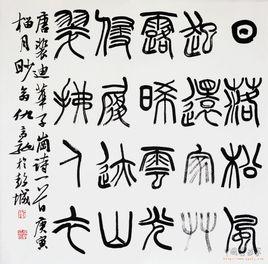 日落松風
起還家艸
露晞雲光
侵履迹山
翠拂人衣
唐裴迪華子崗詩一首庚寅
榴月仇高馳於彭城